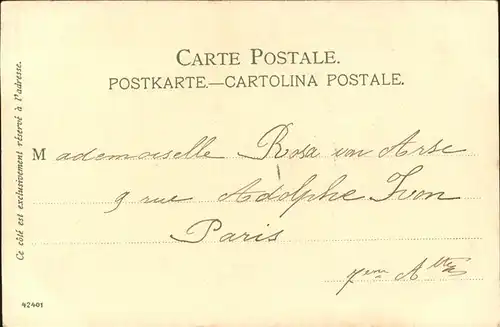 CARTE POSTALE.
POSTKARTE.—CARTOLINA POSTALE.
Ce côté est exclusivement réservé à l'adresse.
Mademoiselle Rosa von Arse
9 rue Adolphe Ivon
Paris
42401